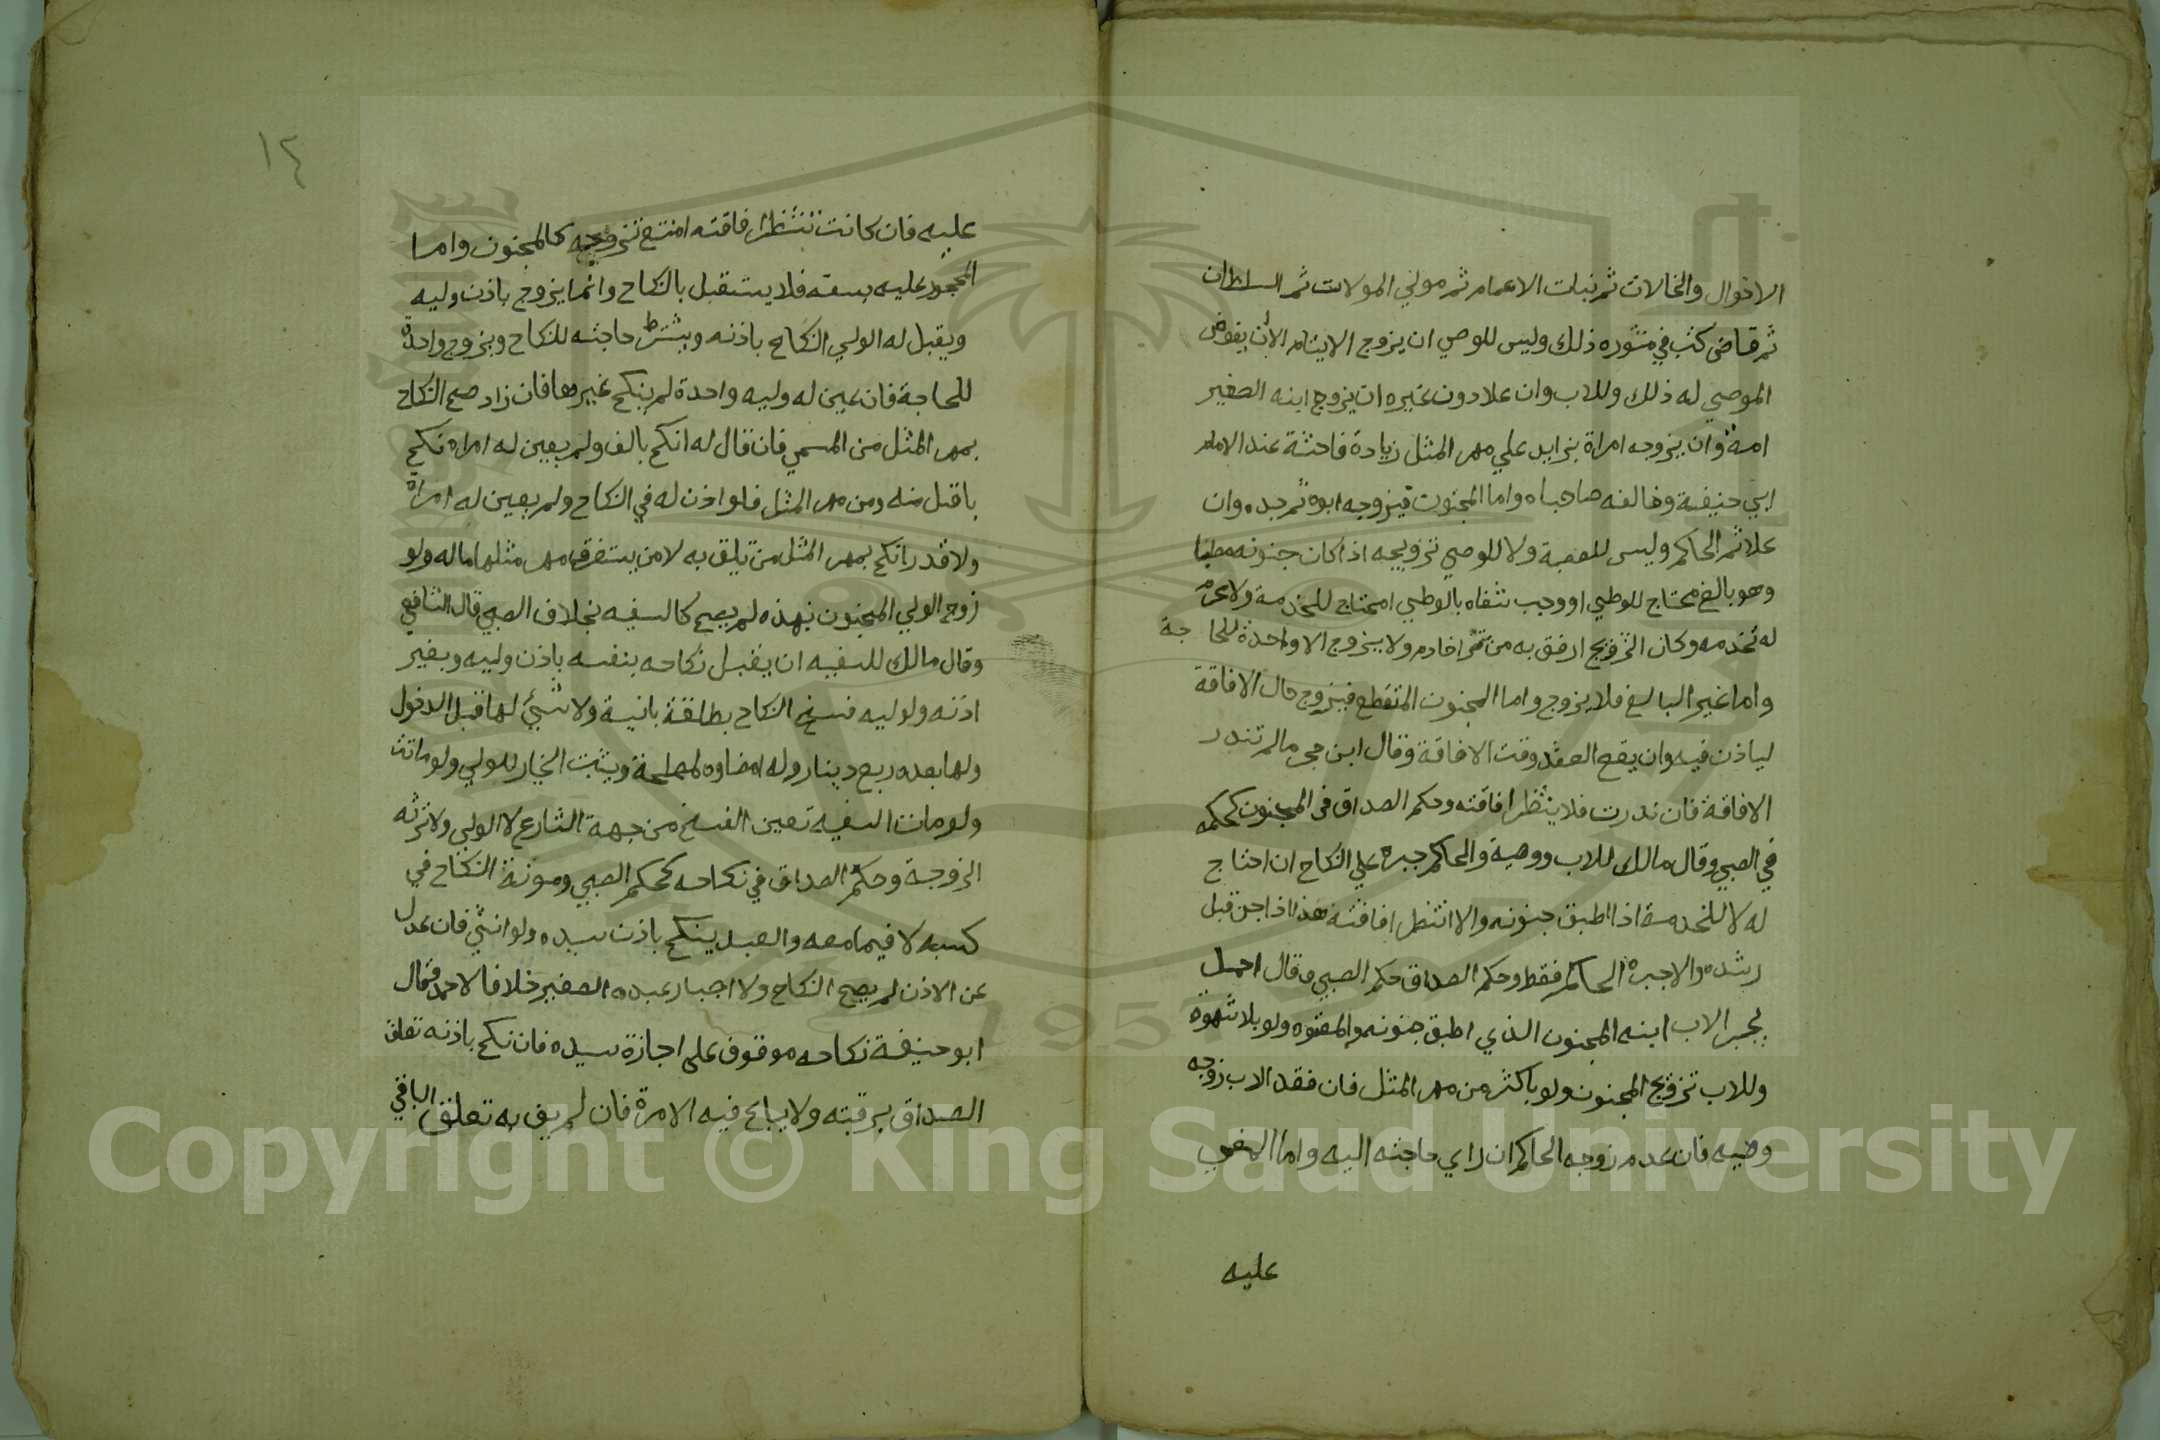 الاخوال والخالات ثم بنات الاعمام ثم مولي الموالات ثم السلطان
ثم قاضى كتب في منثوره ذلك وليس للوصي ان يزوج الايتام الا ان يفوض
الموصي له ذلك وللاب وان علا دون غيره ان يزوج ابنه الصغير
امة وان يزوجه امراة بزايد علي مهر المثل زيادة فاحشة عند الامام
ابي حنيفة وخالفه صاحباه واما المجنون فيزوجه ابوه ثم جده وان
علا ثم الحاكم وليس للعصبة ولا للوصي تزويجه اذا كان جنونه مطبقا
وهو بالغ محتاج للوطي او وجب شفاه بالوطي او محتاج للخدمة ولا محرم
له تخدمه وكان التزويج ارفق به من ثمن خادم ولا يزوج الا واحدة للحاجة
واما غير البالغ فلا يزوج واما المجنون المتقطع فيزوج حال الافاقة
لياذن فيه وان يقع العقد وقت الافاقة وقال ابن حجر مالم تندر
الافاقة فان ندرت فلا ينتظر افاقته وحكم الصداق في المجنون كحكمه
في الصبي وقال مالك للاب ووصية والحاكم جبره علي النكاح ان احتاج
له لا للخدمة اذا اطبق جنونه والا انتظر افاقته هذا اذا جن قبل
رشده والا جبره الحاكم فقط وحكم الصداق حكم الصبي وقال احمد
يجبر الاب ابنه المجنون الذي اطبق جنونه والمعتوه ولو بلا شهوة
وللاب تزويج المجنون ولو باكثر من مهر المثل فان فقد الاب زوجه
وصيه فان عدم زوجه الحاكم ان راي حاجته اليه واما المغمي
عليه
١٢
عليه فان كانت تنتظر افاقته امتنع تزويجه كالمجنون واما
المحجور عليه بسفه فلا يستقبل بالنكاح وانما يزوج باذن وليه
ويقبل له الولي النكاح باذنه ويشترط حاجته للنكاح ويزوج واحدة
للحاجة فان عين له وليه واحدة لم ينكح غيرها فان زاد صح النكاح
بمهر المثل من المسمي فان قال له انكح بالف ولم يعين له امراة نكح
باقل منه ومن مهر المثل فلو اذن له في النكاح ولم يعين له امراة
ولا قدرا نكح بمهر المثل من تليق به لا من يستغرق مهر مثلها ماله ولو
زوج الولي المجنون بهذه لم يصح كالسفيه بخلاف الصبي قال الشافعي
وقال مالك للسفيه ان يقبل نكاحه بنفسه باذن وليه وبغير
اذنه ولوليه فسخ النكاح بطلقة باينة ولا شيئ لها قبل الدخول
ولها بعده ربع دينار وله امضاوه لمصلحة ويثبت الخيار للولي ولو ماتت
ولو مات السفيه تعين الفسخ من جهة الشارع لا الولي ولا ترثه
الزوجة وحكم الصداق في نكاحه كحكم الصبي ومونة النكاح في
كسبه لا فيما معه والعبد ينكح باذن سيده ولو انثي فان عدل
عن الاذن لم يصح النكاح ولا اجبار عبده الصغير خلافا لاحمد وقال
ابو حنيفة نكاحه موقوف على اجازة سيده فان نكح باذنه تعلق
الصداق برقبته ولا يباع فيه الا مرة فان لم يف به تعلق الباقي
Copyright © King Saud University
1957